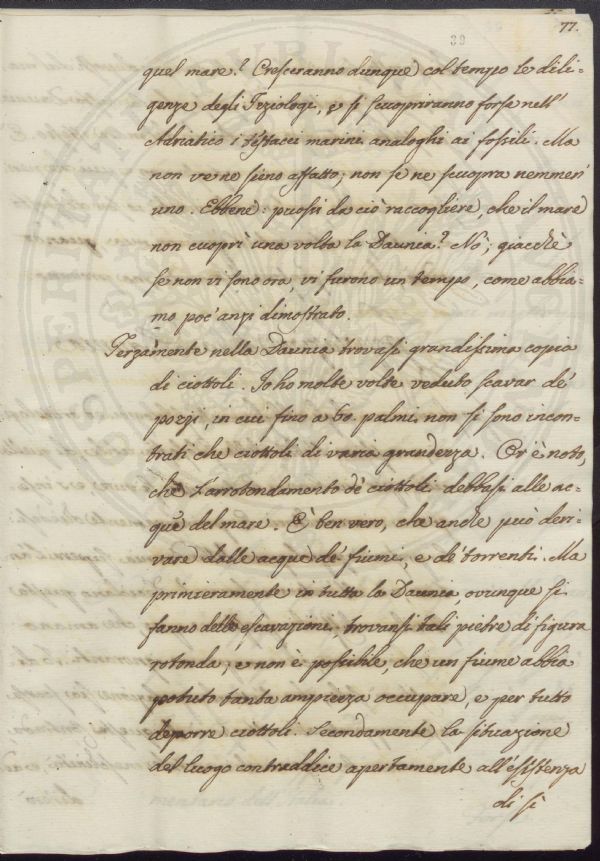 77.
39
quel mare? Cresceranno dunque col tempo le dili-
genze degli Fisiologi, e si scuopriranno forse nell'
Adriatico i testacei marini analoghi ai fossili. Ma
non ve ne sieno affatto; non se ne scuopra nemmen'
uno. Ebbene: puossi da ciò raccogliere, che il mare
non cuoprì una volta la Daunia? No; giacchè
se non vi sono ora, vi furono un tempo, come abbia-
mo poc'anzi dimostrato.
Terzamente nella Daunia trovasi grandissima copia
di ciottoli. Io ho molte volte veduto scavar de'
pozzi, in cui fino a 60. palmi non si sono incon-
trati che ciottoli di varia grandezza. Or è noto,
che l'arrotondamento de' ciottoli debbasi alle ac-
que del mare. È ben vero, che anche può deri-
vare dalle acque de' fiumi, e de' torrenti. Ma
primieramente in tutta la Daunia, ovunque si
fanno delle escavazioni, trovansi tali pietre di figura
rotonda; e non è possibile, che un fiume abbia
potuto tanta ampiezza occupare, e per tutto
deporre ciottoli. Secondamente la situazione
del luogo contraddice apertamente all'esistenza
di sì